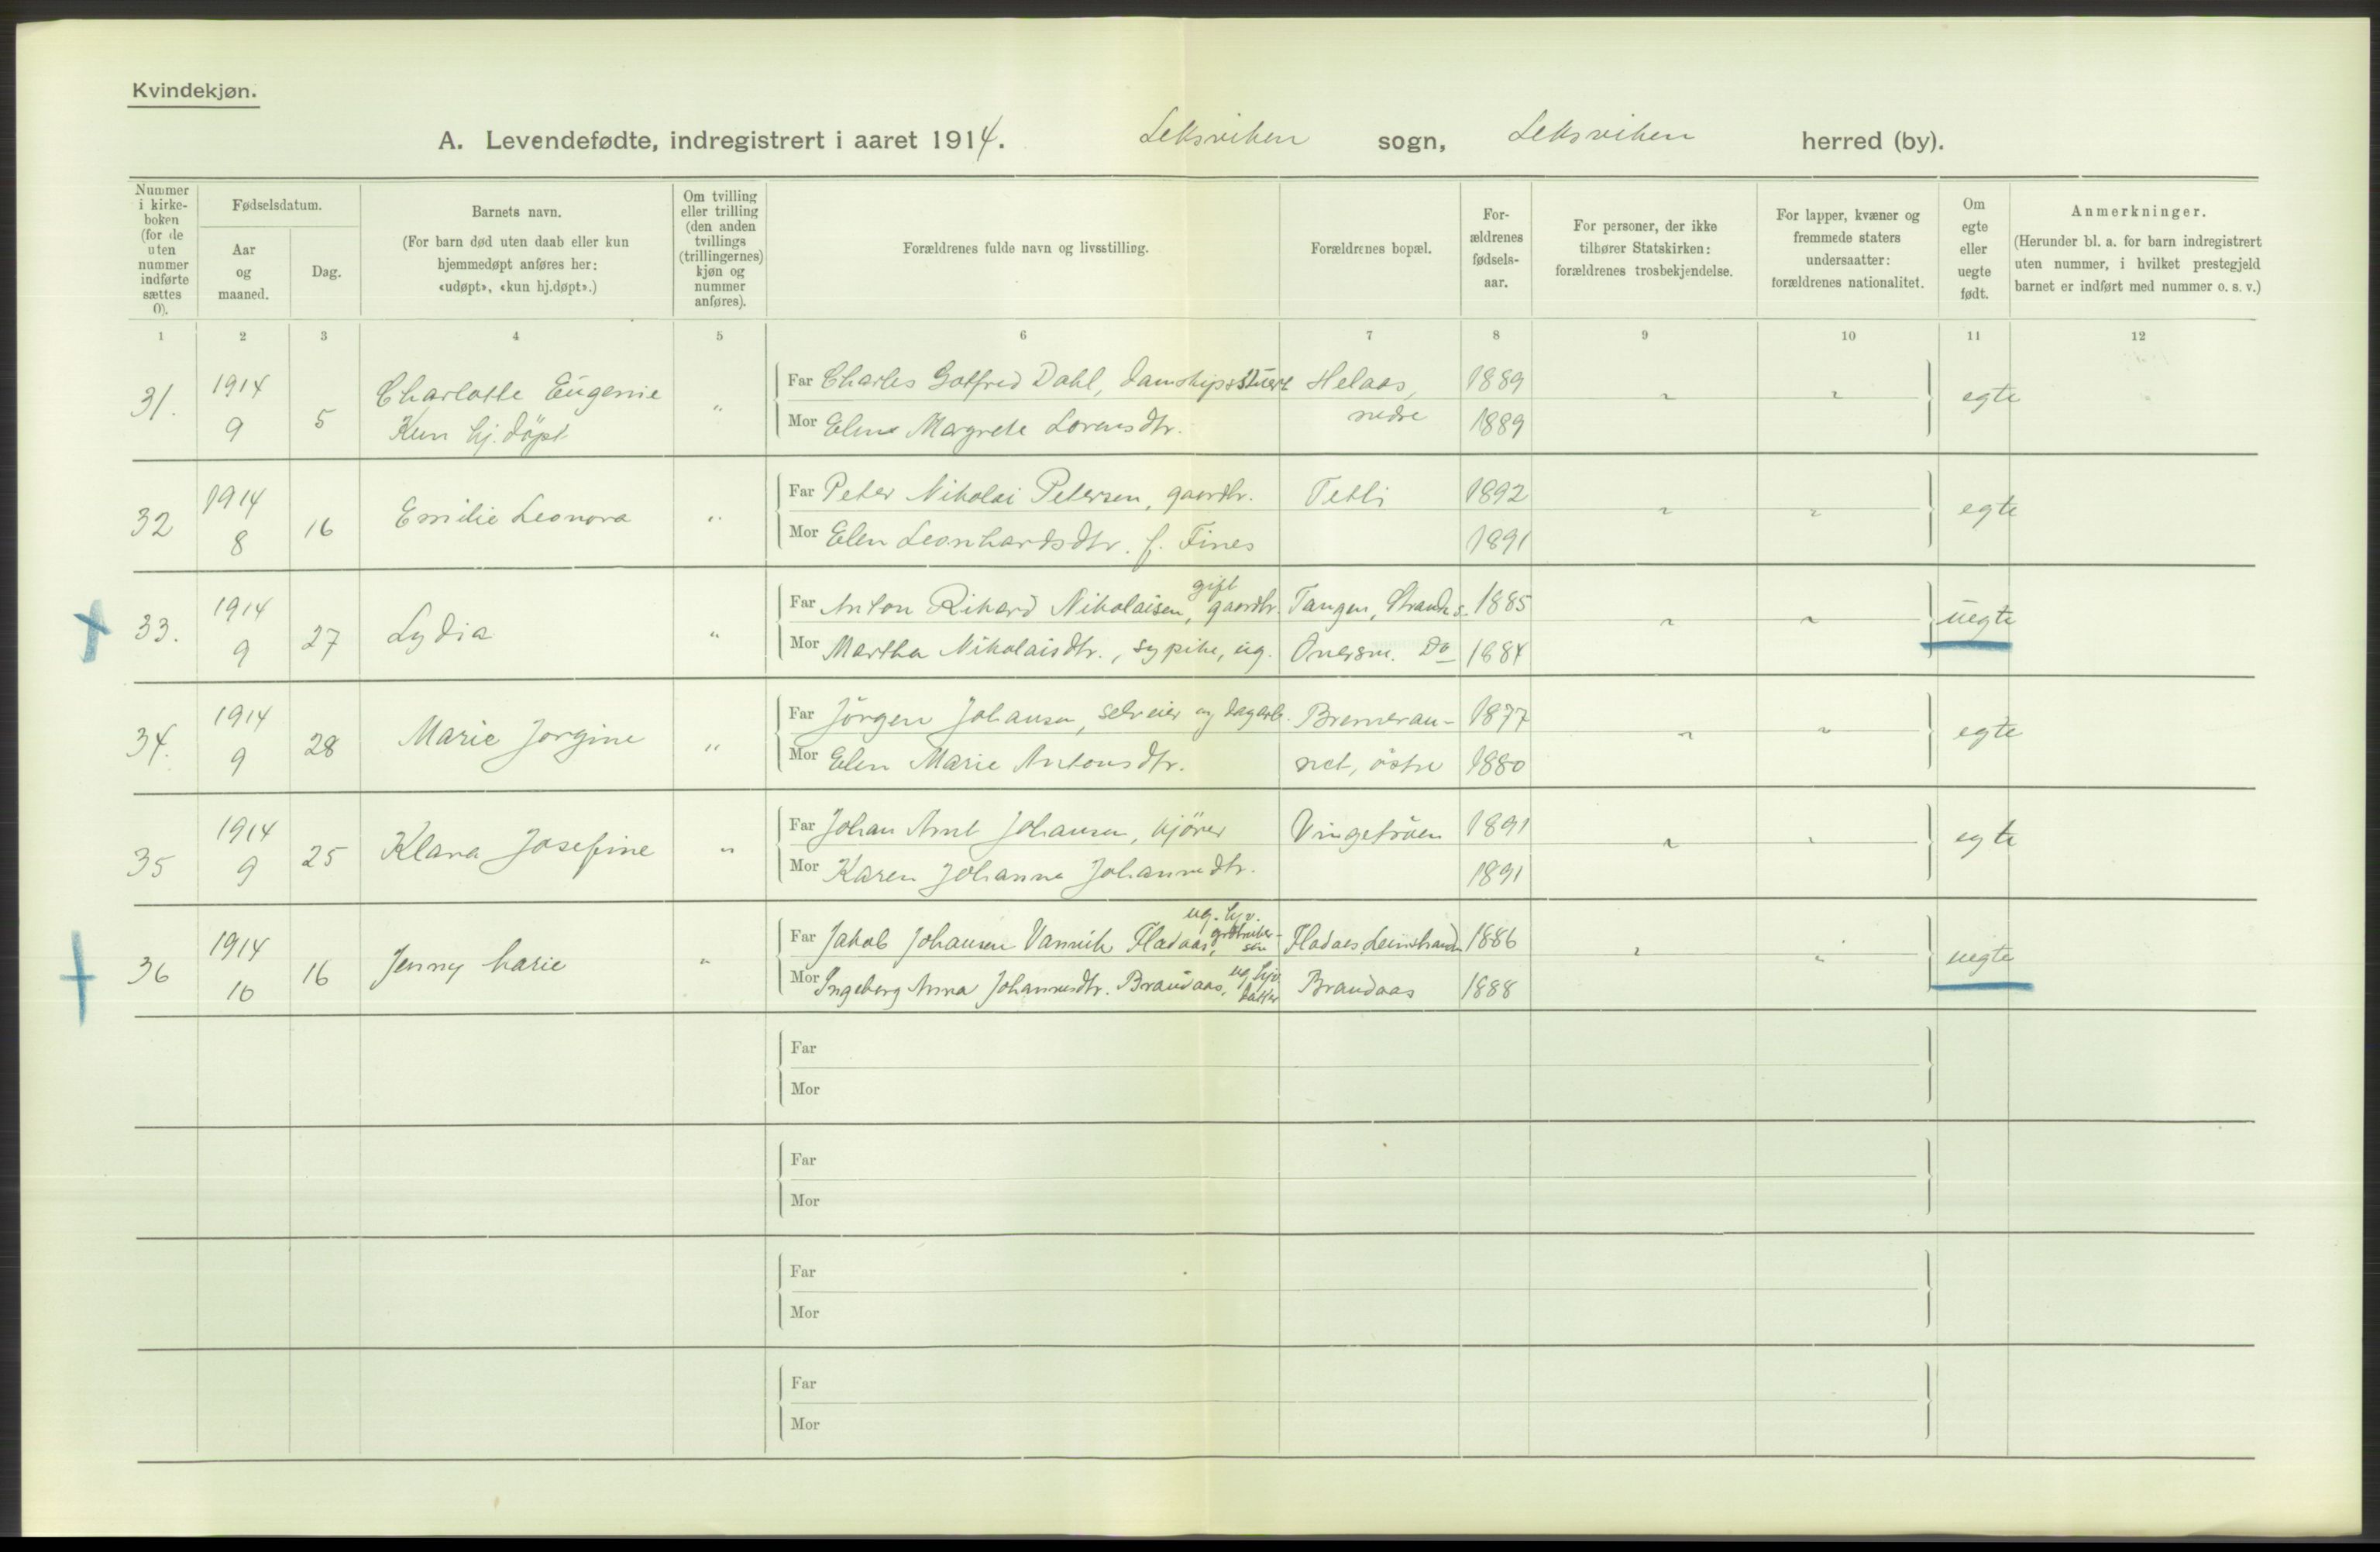 Kvindekjøn.
A. Levendefødte, indregistrert i aaret 1914. Leksviken sogn, Leksviken herred (by).
Nummer i kirke-boken (for de uten nummer indførte sættes 0).
Fødselsdatum.
Aar og maaned.
Dag.
Barnets navn.
(For barn død uten daab eller kun hjemmedøpt anføres her: «udøpt», «kun hj.døpt».)
Om tvilling eller trilling (den anden tvillings (trillingernes) kjøn og nummer anføres).
Forældrenes fulde navn og livsstilling.
Forældrenes bopæl.
For-ældrenes fødsels-aar.
For personer, der ikke tilhører Statskirken: forældrenes trosbekjendelse.
For lapper, kvæner og fremmede staters undersaatter: forældrenes nationalitet.
Om egte eller uegte født.
Anmerkninger.
(Herunder bl. a. for barn indregistrert uten nummer, i hvilket prestegjeld barnet er indført med nummer o. s. v.)
1 2 3 4 5 6 7 8 9 10 11 12
31. 1914 9 5 Charlotte Eugenie Kun hj. døpt " Far Charles Gotfred Dahl, damskipsstuert Helaas, 1889 " " egte
Mor Elene Margrete Lorensdtr. nedre 1889
32 1914 8 16 Emilie Leonora " Far Peter Nikolai Petersen, gaardbr. Tetli 1892 " " egte
Mor Elen Leonhardsdtr. f. Fines 1891
33. 1914 9 27 Lydia " Far Anton Rikard Nikolaisen, gift gaardbr. Tangen, Strand s. 1885 " " uegte
Mor Martha Nikolaisdtr., sypike, ug. Do 1884
34. 1914 9 28 Marie Jørgine " Far Jörgen Johansen, selveier og dagarb. 1877 " " egte
Mor Elen Marie Antonsdtr. net, östre 1880
35 1914 9 25 Klara Josefine " Far Johan Arnt Johansen, kjörer Vingetröen 1891 " " egte
Mor Karen Johanna Johannesdtr. 1891
36 1914 10 16 Jenny Marie " Far Jakob Johansen Vanvik Fladaas, ug. hjv. Fladaas Leinstranden 1886 " " uegte
Mor Ingeborg Anna Johannesdtr. Brandaas, ug. hjv. datter Brandaas 1888
Far
Mor
Far
Mor
Far
Mor
Far
Mor